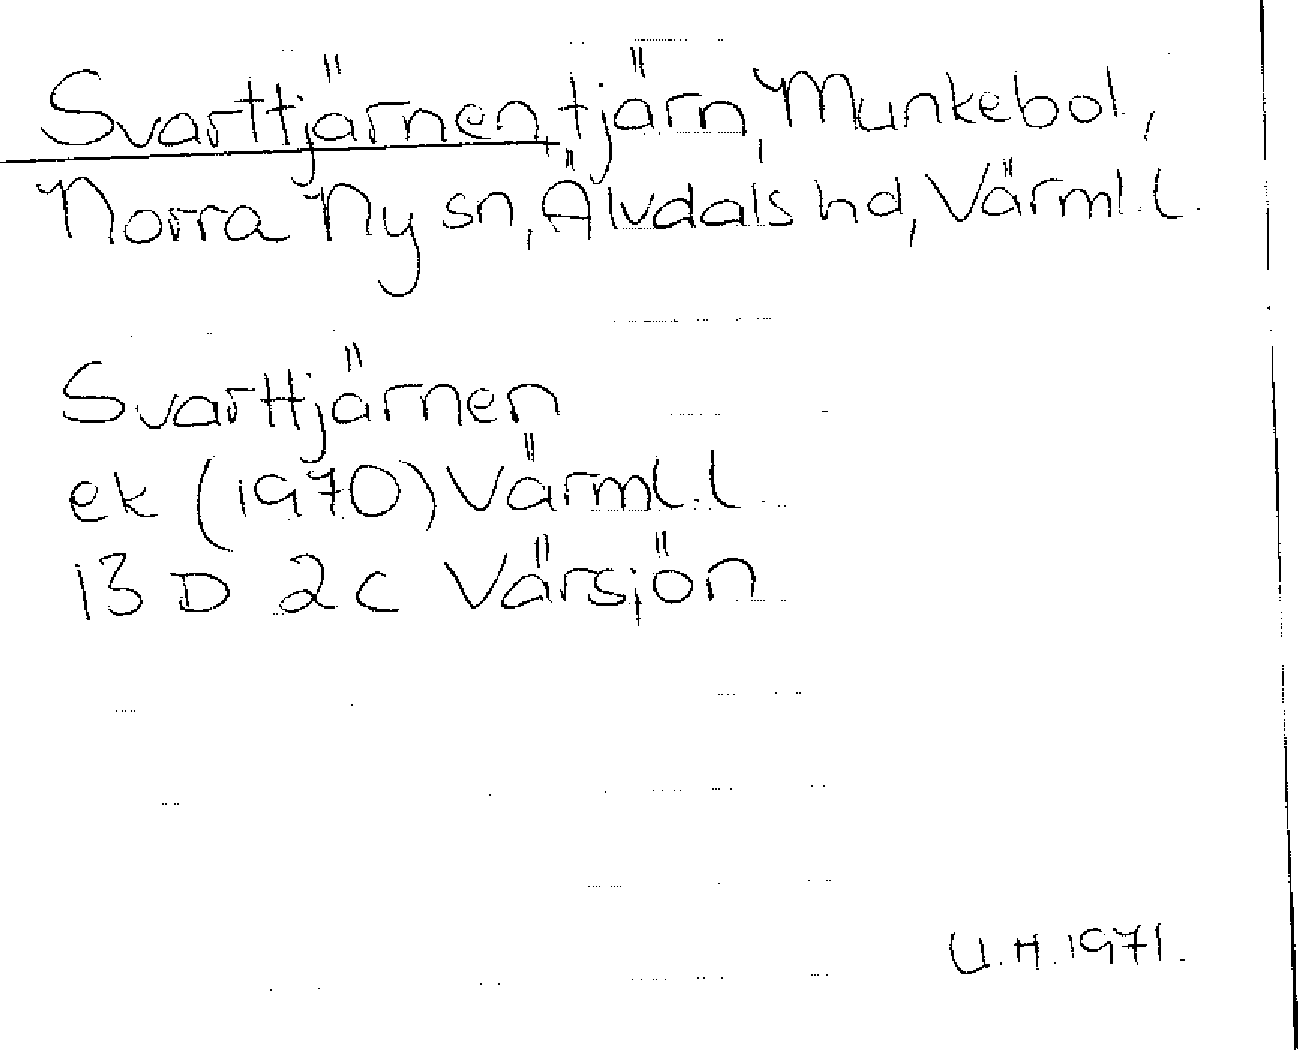 Svarttjärnen, tjärn, Munkebol,
Norra Ny sn, Älvdals hd, Värml. l.
Svarttjärnen
ek (1970) Värml. l.
13 D 2 c Värsjön
U.H. 1971.